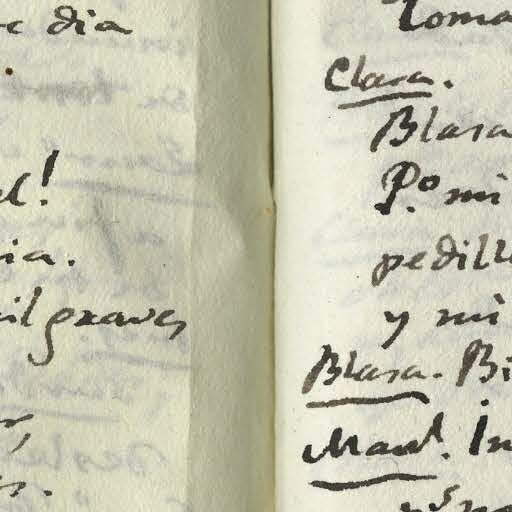 e dia
el!
ia.
il graves
Toma
Clara.
Blasa
P.º mi
pedill
y mi
Blasa. Bi
Man.l In